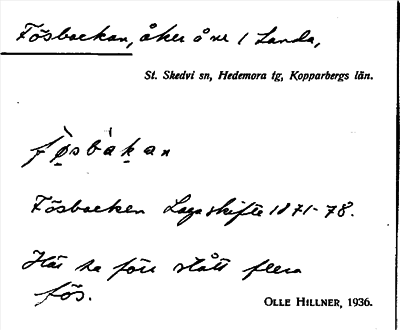 Fösbackan, åker å nr 1 Landa,
St. Skedvi sn, Hedemora tg, Kopparbergs län.
fø̀sbàkan
Fösbacken Lagaskifte 1871-78.
Här ha förr stått flera
fös.
OLLE HILLNER, 1936.